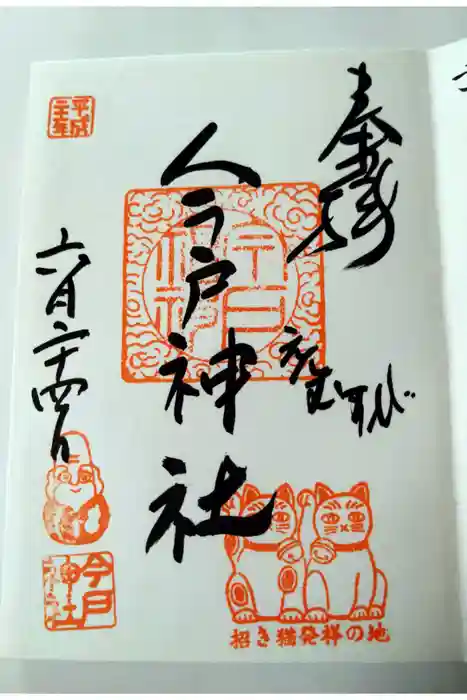 奉拝
縁むすび
今戸神社
今戸神社
平成
六月二十四日
今戸神社
招き猫発祥の地